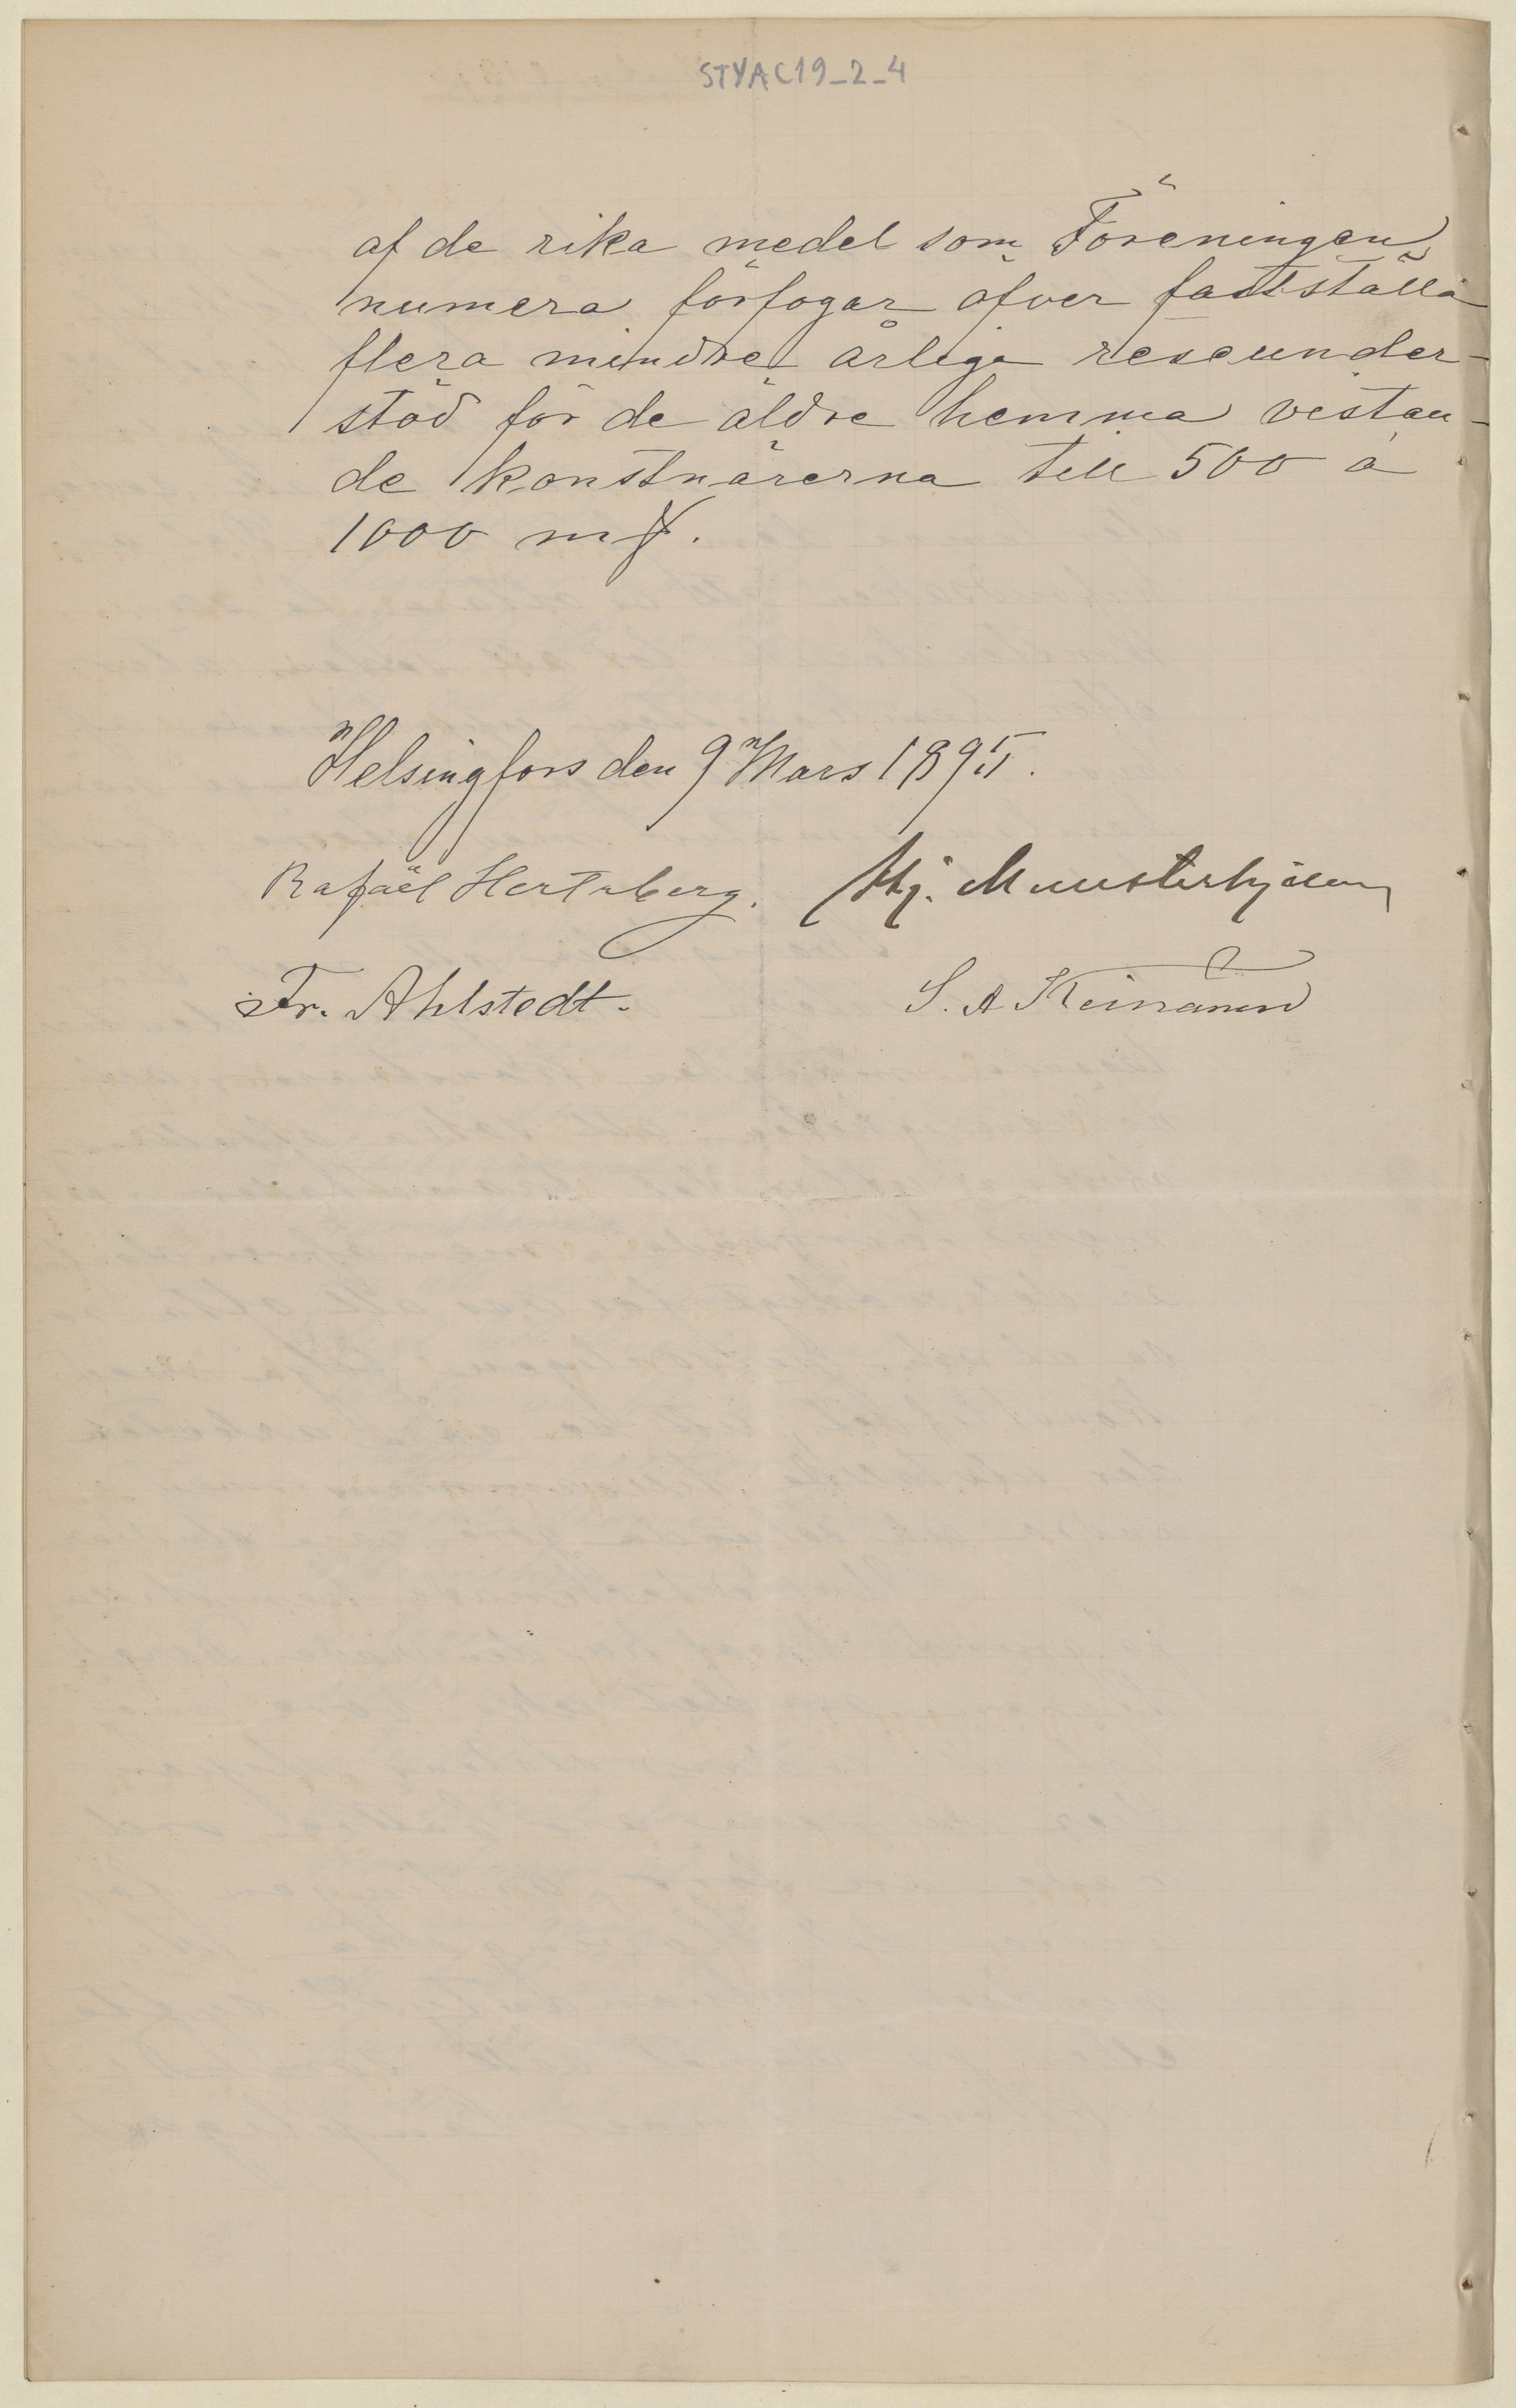 STYAC19_2_4
af de rika medel som Föreningen
numera förfogar öfver fastställa
flera mindre årliga reseunder-
stöd för de äldre hemma vistan-
de konstnärerna till 500 à
1000 mf.
Helsingfors den 9 Mars 1895.
Rafaël Hertzberg. Hj. Munsterhjelm
Fr. Ahlstedt. S. A Keinänen